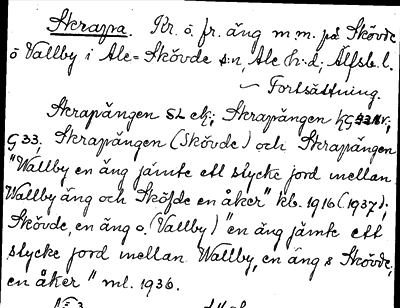 Skrapa. Kr. o. fr. äng m.m. på Skövde
o Vallby i Ale-Skövde s:n, Ale h:d, Älfsb. l.
– Fortsättning.
Skrapängen SL ek; Skrapängen kG
G 33; Skrapängen (Skövde) och Skrapängen
"Wallby en äng jämte ett stycke jord mellan
Wallby äng och Sköfde en åker" kb. 1916 (1937);
Skövde, en äng o. (Vallby) "en äng jämte ett
stycke jord mellan Wallby, en äng & Skövde,
en åker" ml. 1936.